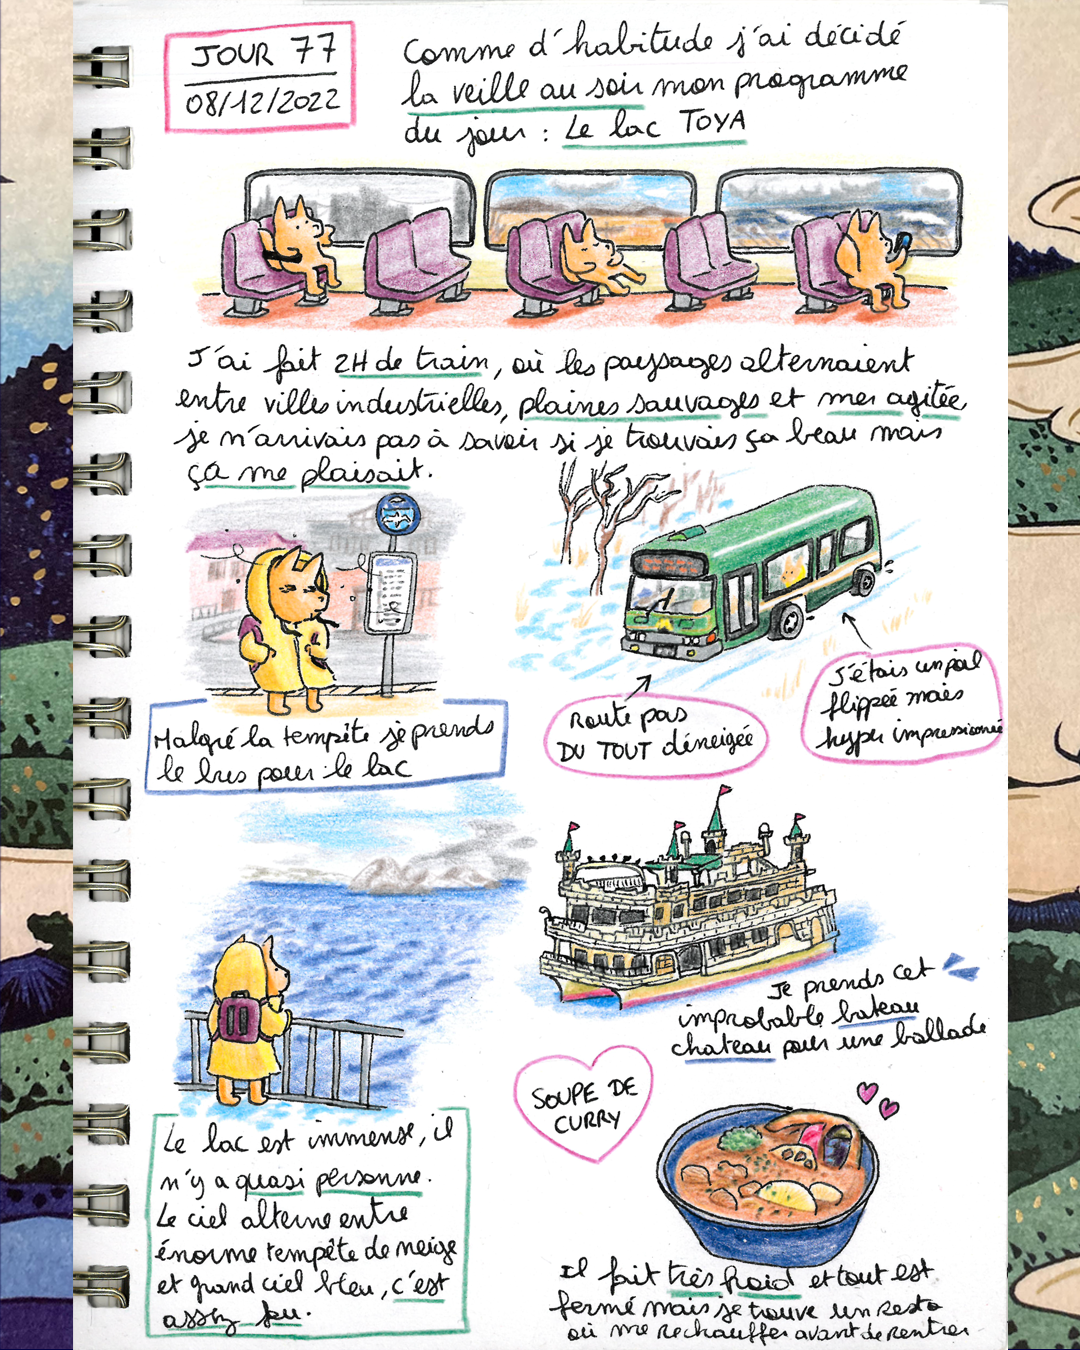 JOUR 77
08/12/2022
Comme d'habitude j'ai décidé
la veille au soir mon programme
du jour : Le lac TOYA
J'ai fait 2H de train, où les paysages alternaient
entre villes industrielles, plaines sauvages et mer agitée,
je n'arrivais pas à savoir si je trouvais ça beau mais
ça me plaisait.
Malgré la tempête je prends
le bus pour le lac
Route pas
DU TOUT déneigée
J'étais un poil
flippée mais
hyper impressionnée
Le lac est immense, il
n'y a quasi personne.
Le ciel alterne entre
énorme tempête de neige
et grand ciel bleu, c'est
assez fou.
Je prends cet
improbable bateau
chateau pour une ballade
SOUPE DE
CURRY
Il fait très froid et tout est
fermé mais je trouve un resto
où me rechauffer avant de rentrer